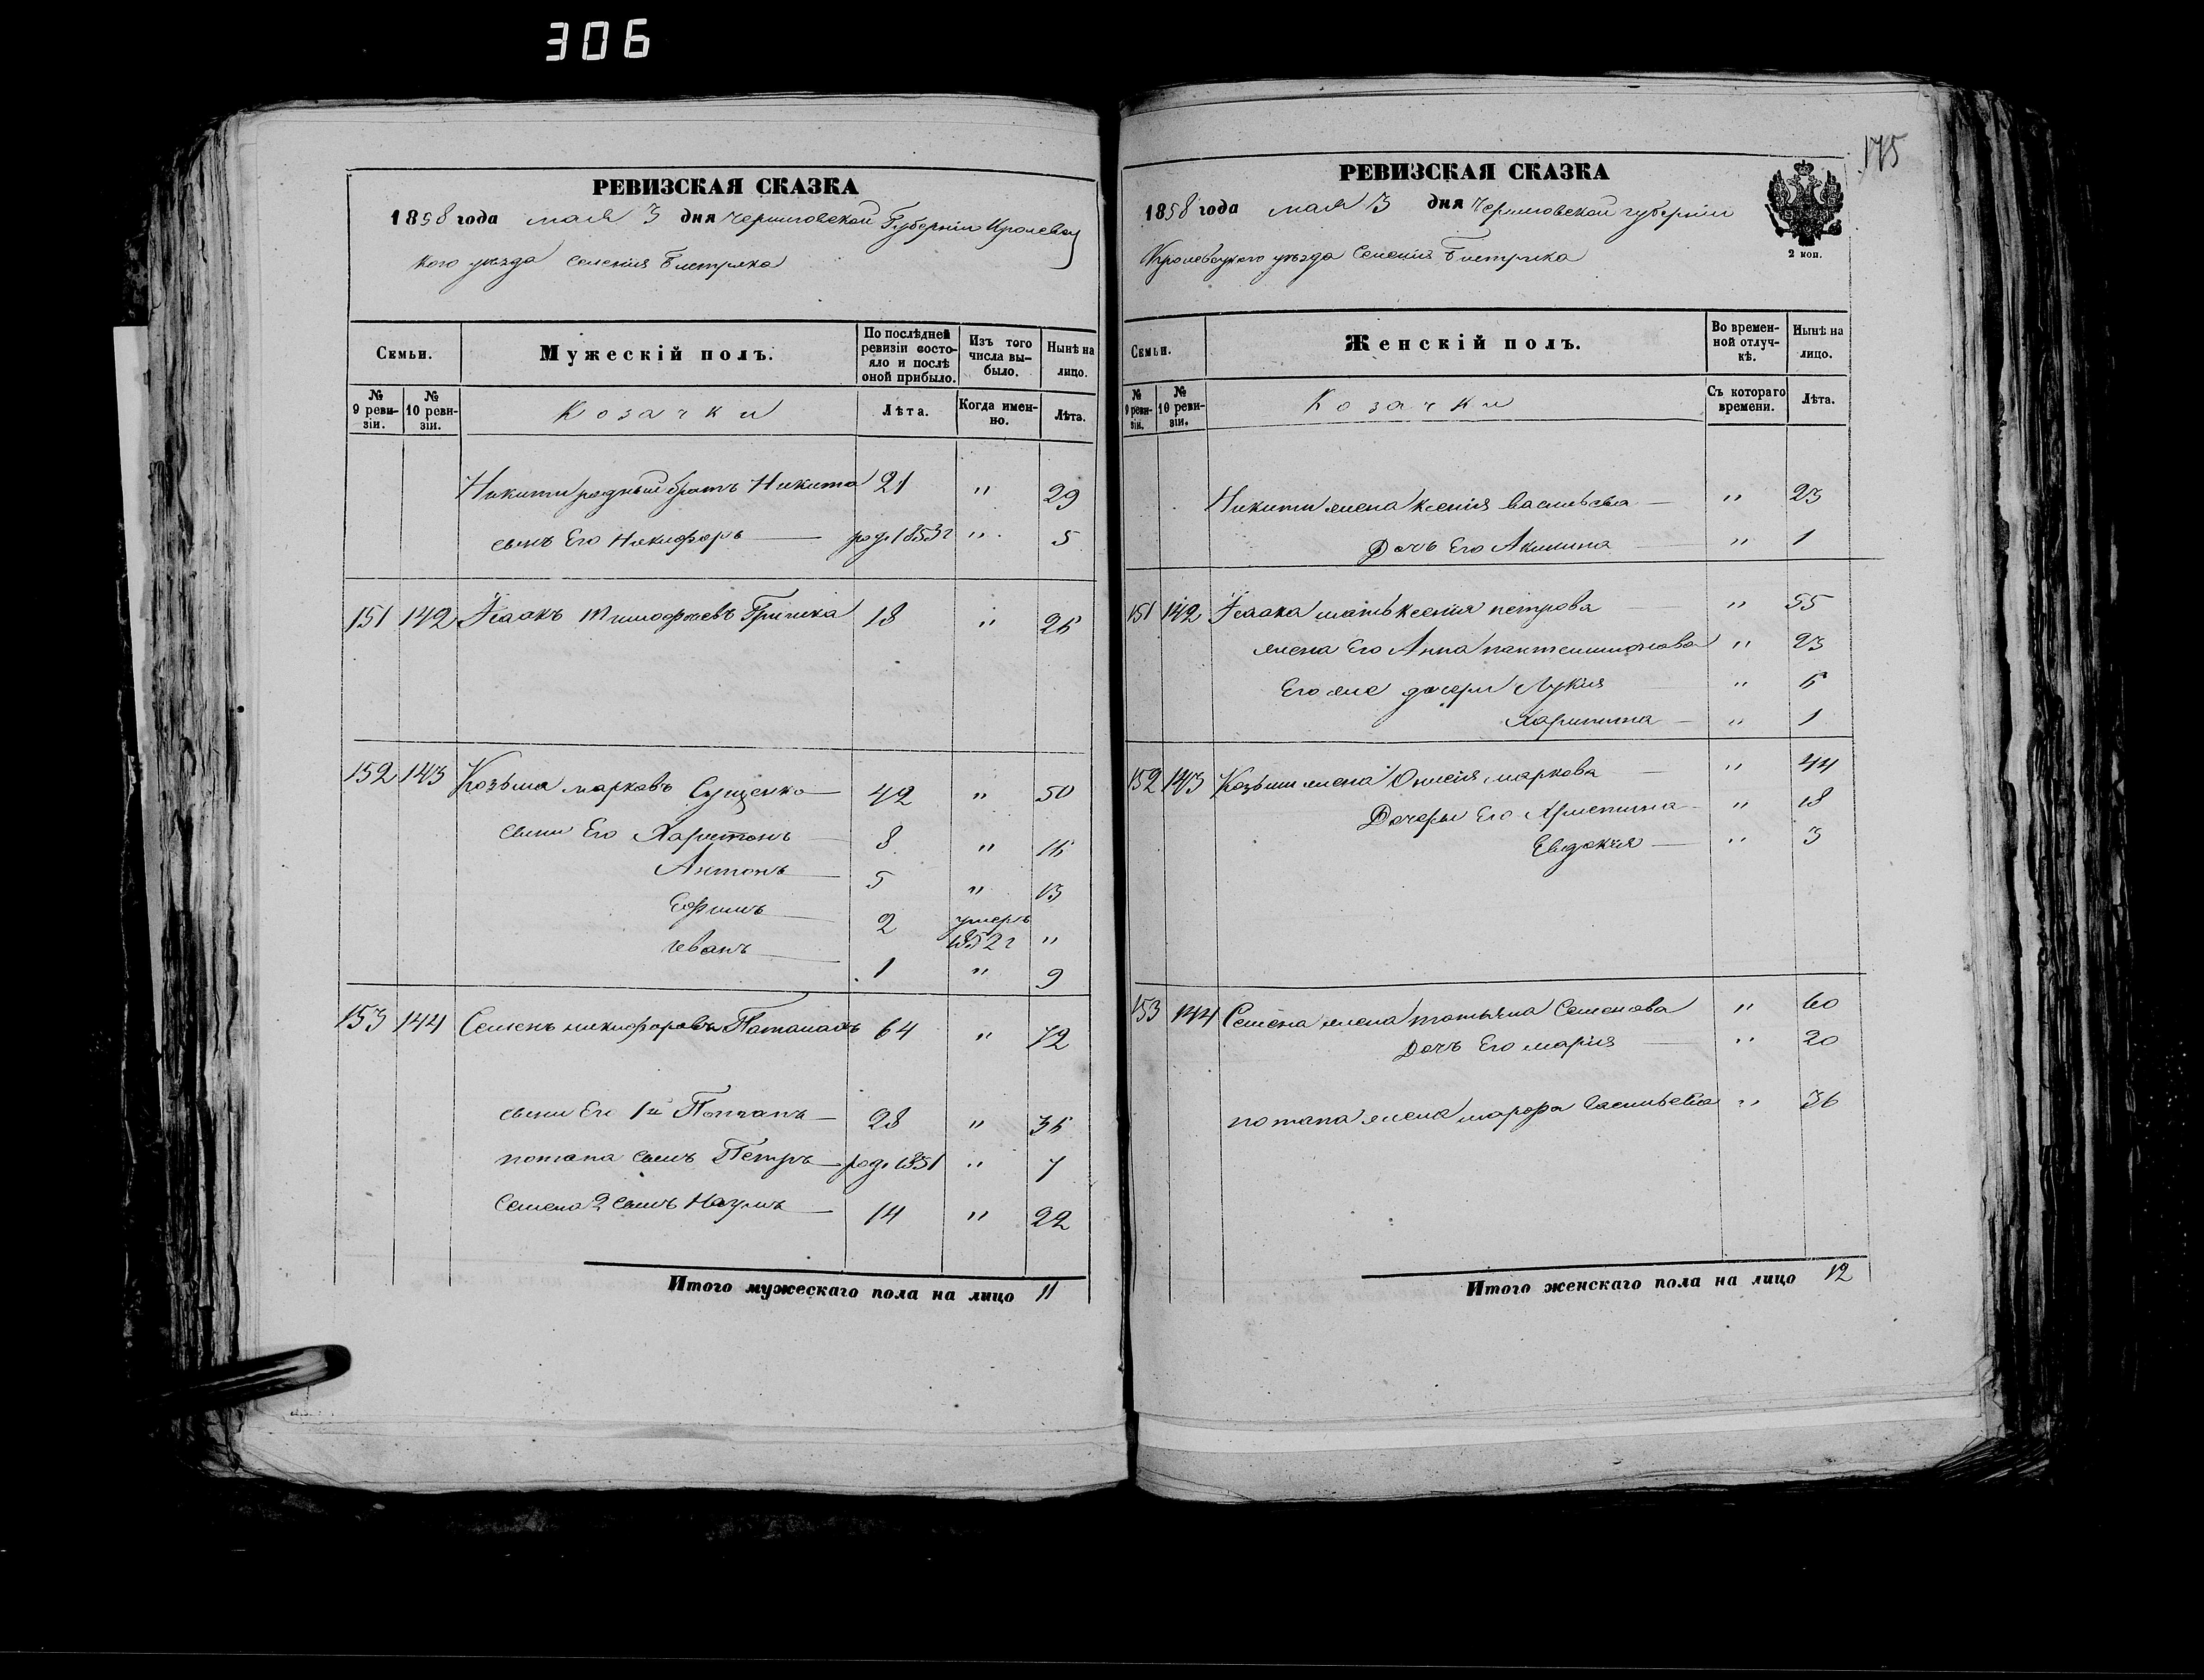 306
РЕВИЗСКАЯ СКАЗКА
1858 года мая 3 дня Черниговской Губерніи Кролевец
кого уезда Селенія Бистрика
Семьи.
Мужескій полъ.
По послѣдней ревизіи состояло и послѣ оной прибыло.
Изъ того числа выбыло.
Нынѣ на лицо.
№ 9 ревизіи.
№ 10 ревизіи.
Козачки
Лѣта.
Когда именно.
Лѣта.
Никити родный братъ Никита 21 " 29
сынъ Его Никифоръ род. 1853 г " 5
151 142 Исаакъ Тимофѣевъ 18 " 26
152 143 Козьма марковъ Сущенко 42 " 50
сыни Его Харитонъ 8 " 16
Антонъ 5 " 13
Ефимъ 2 умеръ 1852 г "
иванъ 1 " 9
153 144 Семенъ никифоровъ 64 " 72
сыни Его 1й Потапъ 28 " 36
потапа сынъ Петръ род. 1851 " 7
Семена 2 сынъ Наумъ 14 " 22
Итого мужескаго пола на лицо 11
175
РЕВИЗСКАЯ СКАЗКА
1858 года мая 3 дня Черниговской губерніи
Кролевецкого уезда Селенія Бистрика
2 коп.
Семьи.
Женскій полъ.
Во временной отлучкѣ.
Нынѣ на лицо.
№ 9 ревизіи.
№ 10 ревизіи.
Козачки
Съ котораго времени.
Лѣта.
Никити жена Ксенія васильева " 23
Дочь Его Акилина " 1
151 142 Исаака мать Ксенія петрова " 55
жена Его Анна пантелимонова " 23
Его же дочери Лукія " 6
Харитина " 1
152 143 Козьми жена маркова " 44
Дочеры Его Христина " 18
Евдокія " 3
153 144 Семена жена татьяна Семенова " 60
Дочъ Его марія " 20
потапа жена марфа васильева " 36
Итого женскаго пола на лицо 12